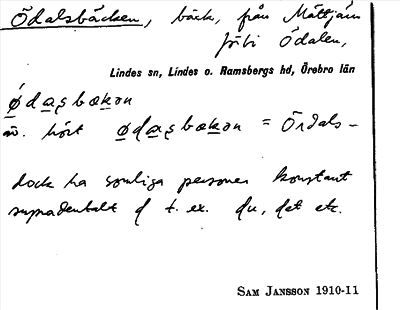 Ödalsbäcken, bäck, från Mättjärn
förbi Ödalen,
Lindes sn, Lindes o. Ramsbergs hd, Örebro län
ǿdaʂbækən
äv. hört ødaʂbækən = Ördals-
dock ha somliga personer konstant
supradentalt d t. ex. du, det etc.
SAM JANSSON 1910-11